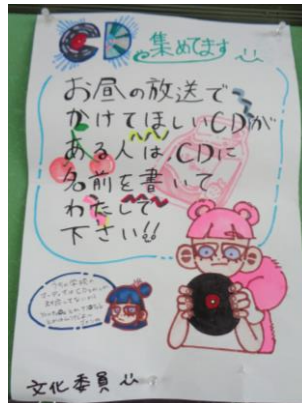 CD 集めてます
お昼の放送で
かけてほしいCDが
ある人は、CDに
名前を書いて
わたして
下さい!!
文化委員